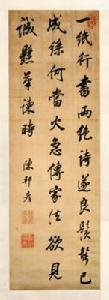 一紙行書兩絕詩遂良鬚鬢已
成絲何當火急傳家法欲見
誠懸筆諫時 陳邦彥